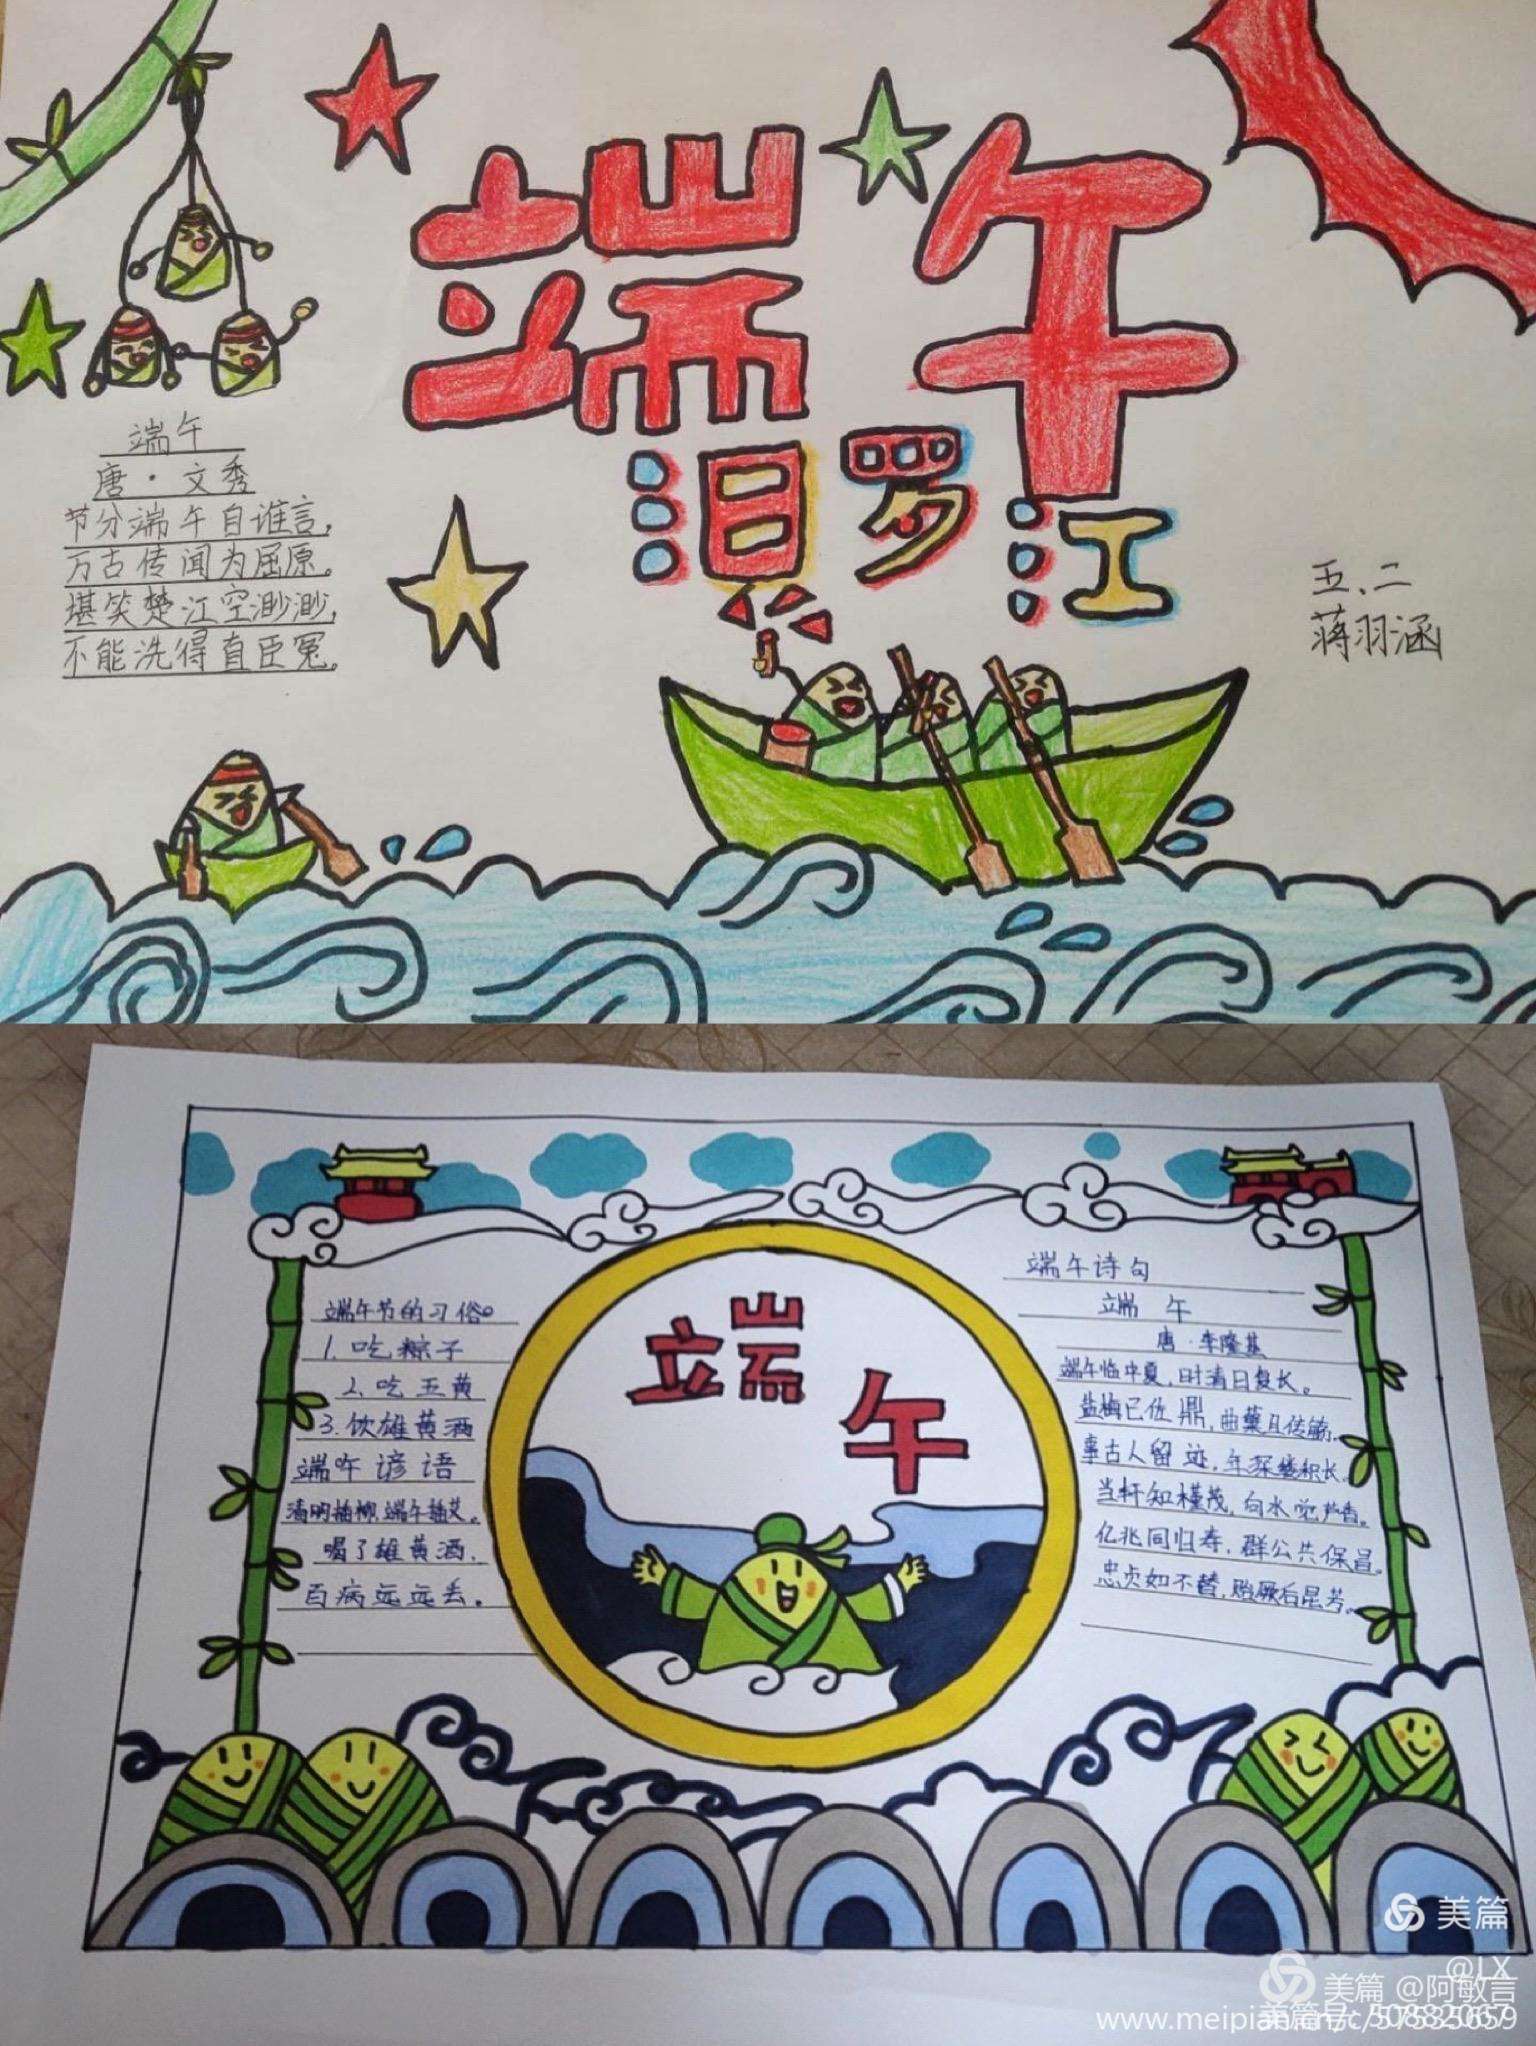 端午
汨罗江
端午
唐·文秀
节分端午自谁言,
万古传闻为屈原。
堪笑楚江空渺渺,
不能洗得直臣冤。
五、二
蒋羽涵
端午
端午节的习俗。
1. 吃粽子
2. 吃五黄
3. 饮雄黄酒
端午谚语
清明插柳,端午插艾。
喝了雄黄酒,
百病远远丢。
端午诗句
端 午
唐·李隆基
端午临中夏,时清日复长。
盐梅已佐鼎,曲糵且传觞。
事古人留迹,年深缕积长。
当轩知槿茂,向水觉芦香。
亿兆同归寿,群公共保昌。
忠贞如不替,贻厥后昆芳。
美篇
@LX
美篇 @阿敏言